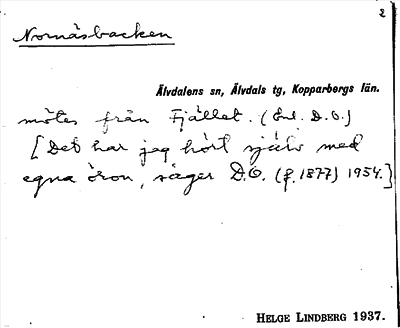 2
Nornäsbacken
Älvdalens sn, Älvdals tg, Kopparbergs län.
mötes från Fjället. (Enl. D.Ö.)
[Det har jag hört själv med
egna öron, säger D.Ö. (f. 1877) 1954.]
HELGE LINDBERG 1937.